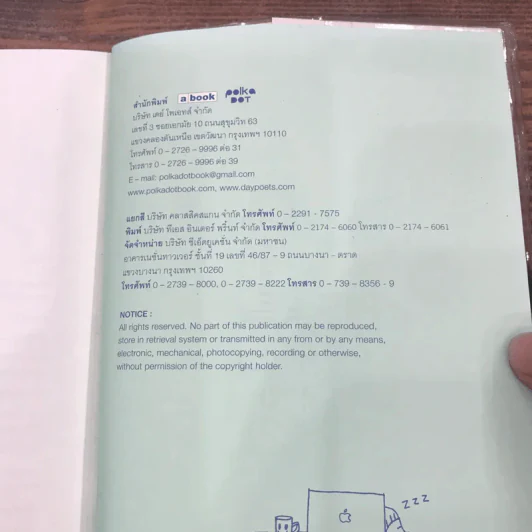 สำนักพิมพ์ a book polka DOT
บริษัท เดย์ โพเอทส์ จำกัด
เลขที่ 3 ซอยเอกมัย 10 ถนนสุขุมวิท 63
แขวงคลองตันเหนือ เขตวัฒนา กรุงเทพฯ 10110
โทรศัพท์ 0 – 2726 – 9996 ต่อ 31
โทรสาร 0 – 2726 – 9996 ต่อ 39
E – mail: polkadotbook@gmail.com
www.polkadotbook.com, www.daypoets.com
แยกสี บริษัท คลาสสิคสแกน จำกัด โทรศัพท์ 0 – 2291 - 7575
พิมพ์ บริษัท พีเอส อินเตอร์ พริ้นท์ จำกัด โทรศัพท์ 0 – 2174 – 6060 โทรสาร 0 – 2174 – 6061
จัดจำหน่าย บริษัท ซีเอ็ดยูเคชั่น จำกัด (มหาชน)
อาคารเนชั่นทาวเวอร์ ชั้นที่ 19 เลขที่ 46/87 – 9 ถนนบางนา - ตราด
แขวงบางนา กรุงเทพฯ 10260
โทรศัพท์ 0 – 2739 – 8000, 0 – 2739 – 8222 โทรสาร 0 – 739 – 8356 - 9
NOTICE :
All rights reserved. No part of this publication may be reproduced,
store in retrieval system or transmitted in any from or by any means,
electronic, mechanical, photocopying, recording or otherwise,
without permission of the copyright holder.
zzz